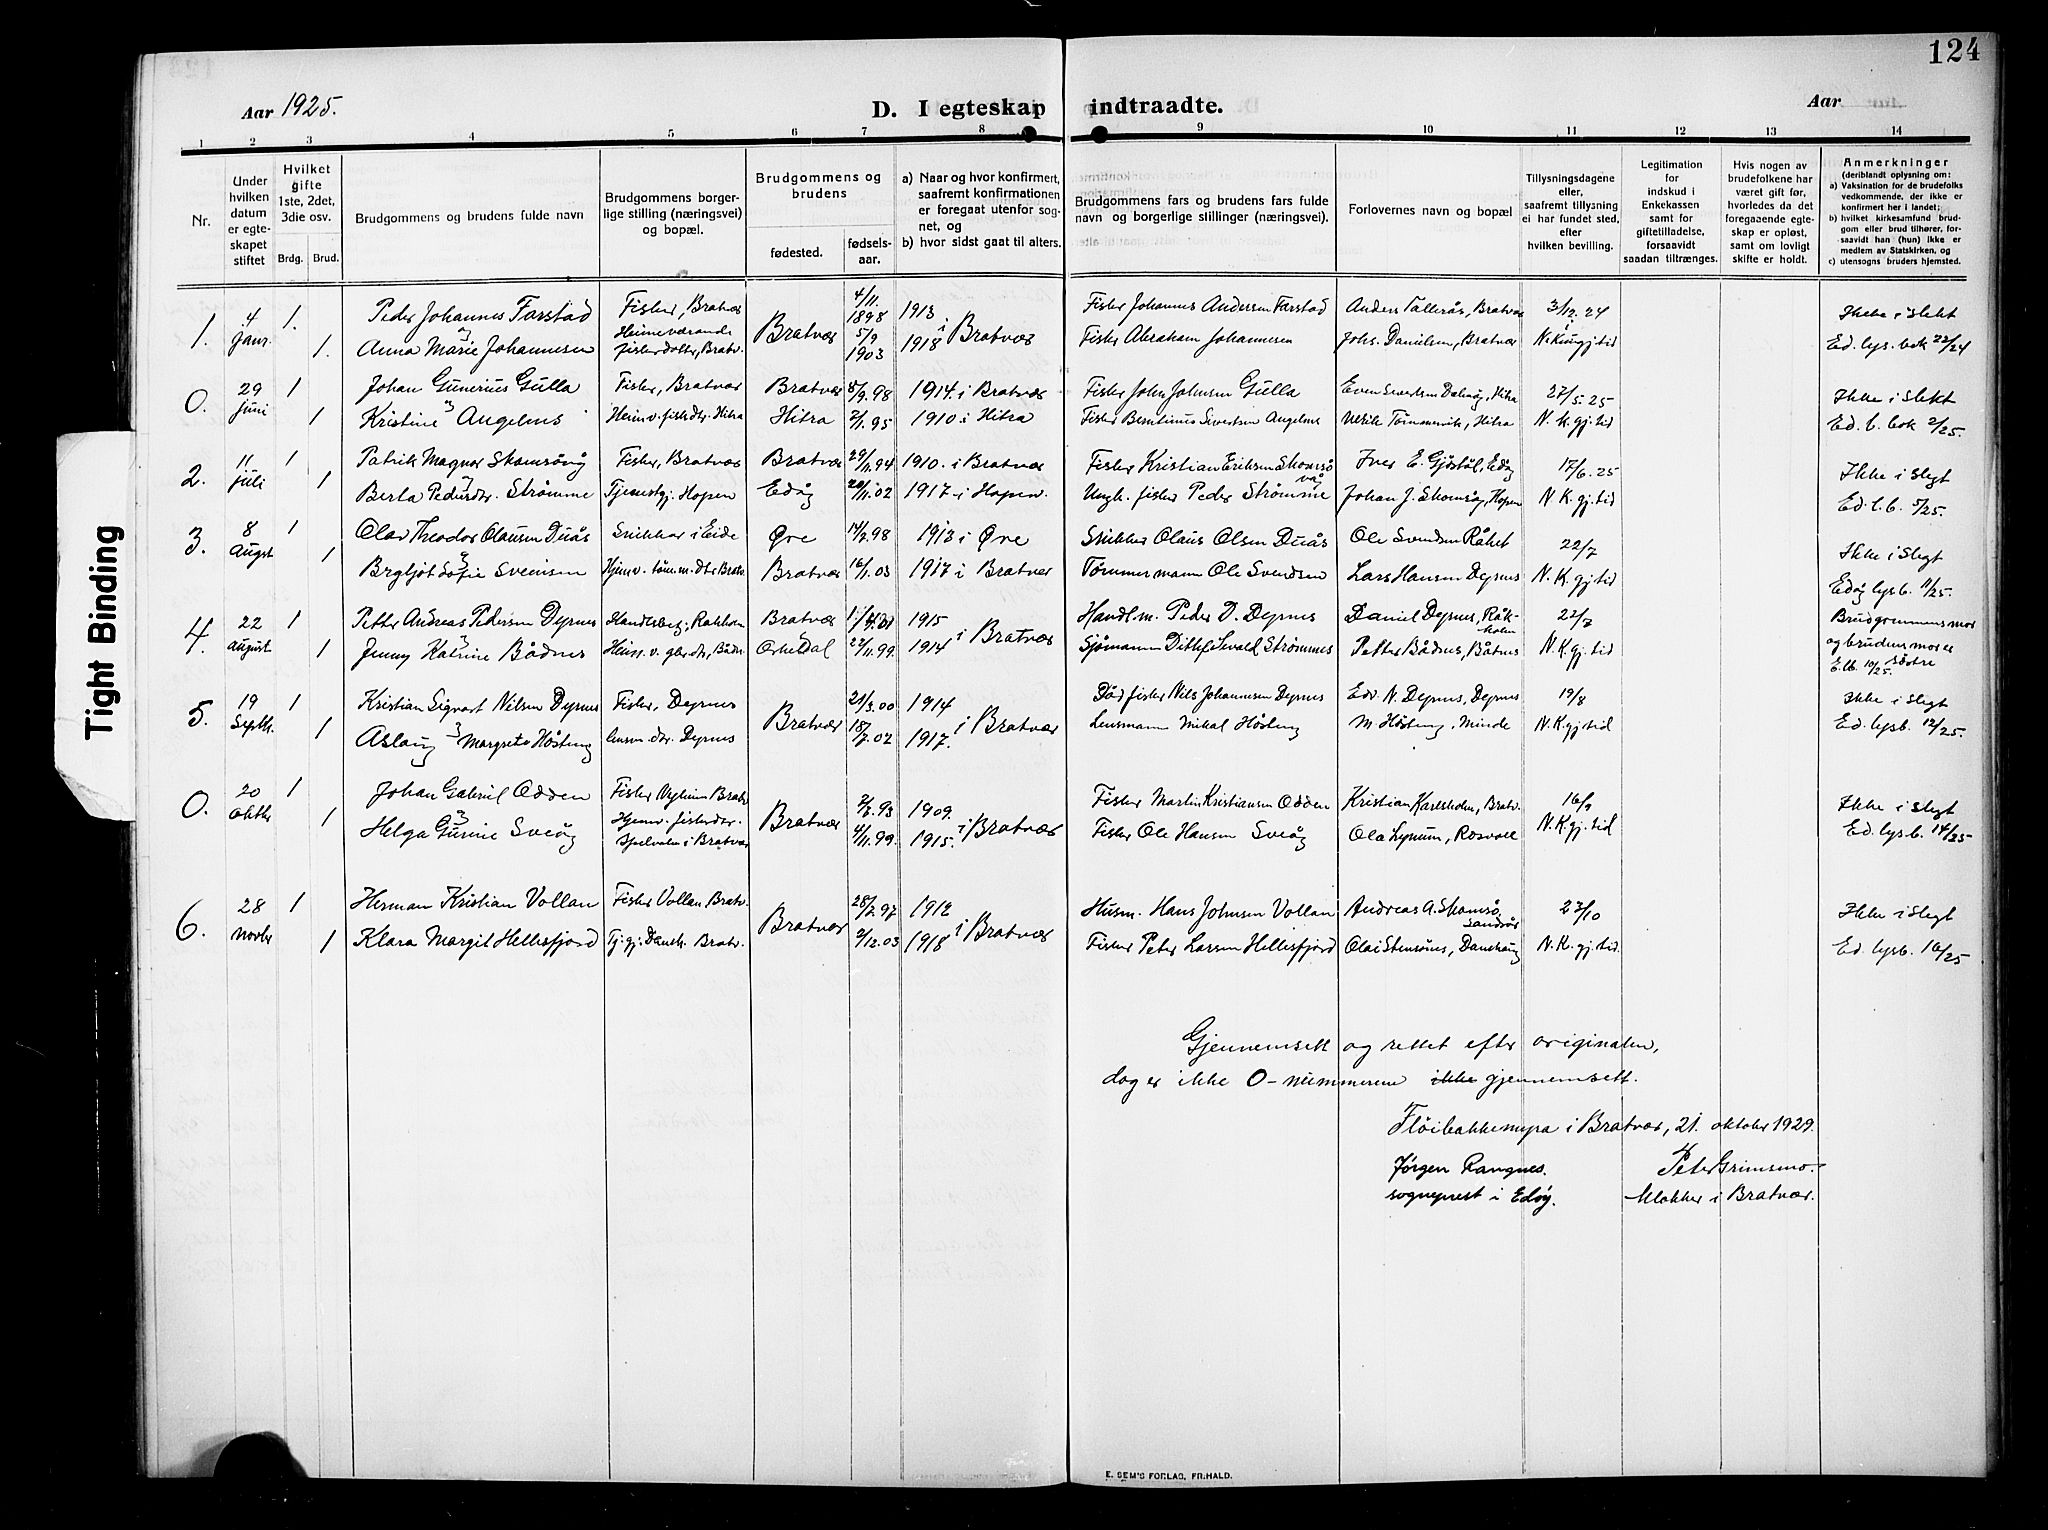 124
Aar 1925.
D. I egteskap indtraadte.
Aar
1 2 3 4 5 6 7 8 9 10 11 12 13 14
Nr.
Under hvilken datum er egteskapet stiftet
Hvilket gifte 1ste, 2det, 3die osv.
Brdg. Brud.
Brudgommens og brudens fulde navn
Brudgommens borgerlige stilling (næringsvei) og bopæl.
Brudgommens og brudens
fødested.
fødselsaar.
a) Naar og hvor konfirmert, saafremt konfirmationen er foregaat utenfor sognet, og
b) hvor sidst gaat til alters.
Brudgommens fars og brudens fars fulde navn og borgerlige stillinger (næringsvei).
Forlovernes navn og bopæl
Tillysningsdagene eller, saafremt tillysning ei har fundet sted, efter hvilken bevilling.
Legitimation for indskud i Enkekassen samt for giftetilladelse, forsaavidt saadan tiltrænges.
Hvis nogen av brudefolkene har været gift før, hvorledes da det foregaaende egteskap er opløst, samt om lovlig skifte er holdt.
Anmerkninger
(deriblandt oplysning om:
a) Vaksination for de brudefolks vedkommende, der ikke er konfirmert her i landet;
b) hvilket kirkesamfund brudgom eller brud tilhører, forsaavidt han (hun) ikke er medlem av Statskirken, og
c) utensogns bruders hjemsted.
1. 4 Janr. 1. Peder Johannes Farstad Fisker, Bratvær 4/11. 1898 1913 Fisker Johannes Andersen Farstad Anders Tallerås, Bratvær 3/12. 24 Ikke i slekt
og
1. Anna Marie Johannesen Heimeværande fiskerdotter, Bratv. Bratvær 5/9 1903 1918 i Bratvær Fisker Abraham Johannesen Johs. Danielsen, Bratvær N. Kungj. tid Ed. lys. bok 22/24
0. 29 Juni 1 Johan Gunerius Gulla Fisker, Bratvær Bratvær 5/9. 98 1914. i Bratvær Fisker John Johnsen Gulla Even Sivertsen Dalvåg, Hitra 27/5. 25 Ikke i slekt
og
1 Kristine Angelms Heimv. fiskdtr. Hitra Hitra 2/1. 95 1910 i Hitra Fisker Berntinus Sivertsen Angelms Ulrik Tømmervik, Hitra N. K. gj. tid Ed. l. bok 2/25.
2. 11 Juli 1 Patrik Magnor Skomsøvåg Fisker, Bratvær Bratvær 29/11. 94 1910. i Bratvær Fisker Kristian Eriksen Skomsøvåg Iver E. Gjøstøl, Edøy 17/6. 25 Ikke i slegt
og
1 Berta Pedersdtr. Strømme Tjenestgj. Hopen Edøy 20/11. 02 1917 i Hopen. Ungk. fisker Peder Strømme Johan J. Skomsøy, Hopen N. K. gj. tid Ed. l. b. 5/25.
3. 8 Augst 1 Olav Theodor Olausen Duås Snikkar i Eide Øre 14/2. 98 1913 i Øre Snikker Olaus Olsen Duås Ole Svendsen Råket 22/7 Ikke i slegt
og
1 Bergljot Sofie Svensen Hjemv. tøm.m. dtr. Bratv. Bratvær 16/1. 03 1917 i Bratvær Tømmermann Ole Svendsen Lars Hansen Dyrnes N. K. gj. tid Edøy lysb. 11/25.
4. 22 August 1 Petter Andreas Pedersen Dyrnes Handelsbetj., Rokholm Bratvær 1915 Handl.m. Peder D. Dyrnes Daniel Dyrnes, Råkholm 22/7 Brudgommens mor
og
1 Jenny Katrine Bådnes Heim. v. gbr. dtr., Bådn. Orkedal 22/11. 99 1914 i Bratvær Sjømann Ditlef Sevald Strømmes Petter Bådnes, Båtnes N. K. gj. tid og brudens mor er søstre E.l.b. 10/25.
5. 19 Septbr. 1 Kristian Sigvart Nilsen Dyrnes Fisker, Dyrnes 21/3. 00 1914 Død fisker Nils Johannesen Dyrnes Edv. N. Dyrnes, Dyrnes 19/8 Ikke i slegt
og
1 Aslaug Margrete Høsteng lensm. dtr. Dyrnes Bratvær 18/7. 02 1917. i Bratvær Lensmann Mikal Høsteng M. Høsteng, Minde N. K. gj. tid Ed. lysb. 12/25.
0. 20 Oktbr 1 Johan Gabriel Odden Fisker Nyheim Bratv 2/3. 93 1909. Fisker Martin Kristiansen Odden Kristian Karlsholm, Bratv. 16/9 Ikke i slegt
og
1 Helga Gurine Sveøy Hjemv. fiskerdtr. Bjelvolm i Bratvær Bratvær 4/11. 99. 1915. i Bratvær Fisker Ole Hansen Sveøy Ola Lynum, Rosvoll N. K. gj. tid Ed. lysb. 14/25
6. 28 Novbr 1 Herman Kristian Vollan Fisker Vollan Bratv. 28/2. 97 1912 Husm. Hans Johnsen Vollan Andreas A. Skomsø, Sandvær 23/10 Ikke i slegt
1 Klara Margit Hellesfjord Tj. gj. Dansk. Bratv. Bratvær 2/12. 03 1918 i Bratvær Fisker Peter Larsen Hellesfjord Olai Stensønes, Danskaug N. K. gj. tid. Ed. lysb. 16/25
Gjennemsett og rettet efter originalen,
dog er ikke 0-nummerene ikke gjennemsett.
Fløibakkemyra i Bratvær, 21. oktober 1929.
Jørgen Rangnes. Peter Grimsmo.
sogneprest i Edøy. klokker i Bratvær.
E. SEM'S FORLAG, FR.HALD.
Tight Binding